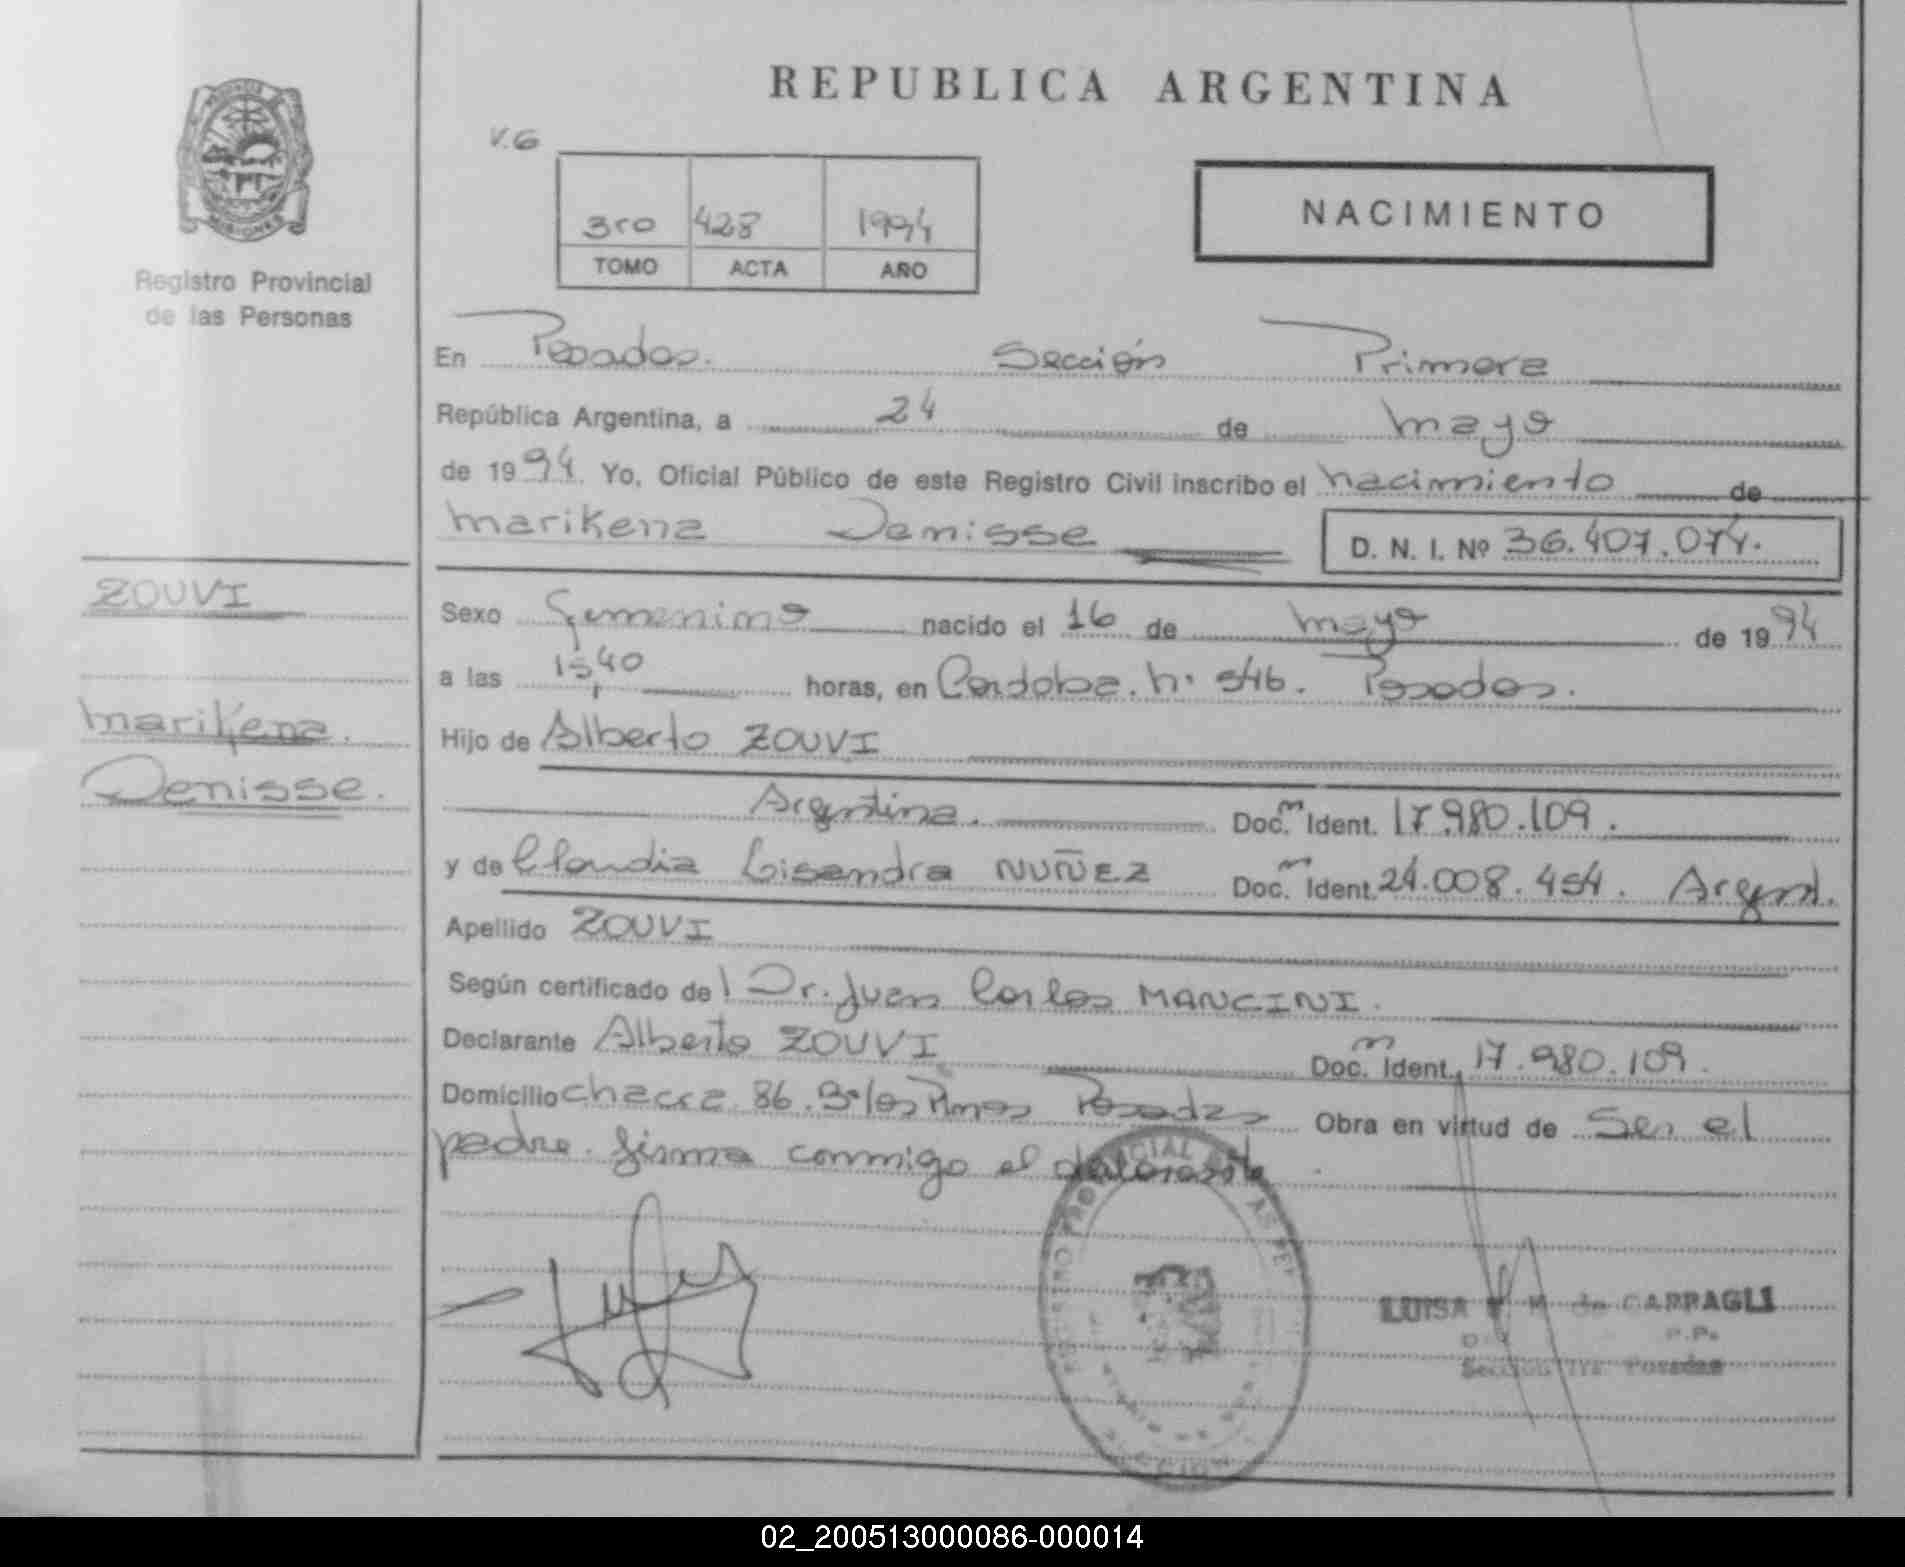 REPUBLICA ARGENTINA
V.G
NACIMIENTO
3ro 428 1994
TOMO ACTA AÑO
PROVINCIA
MISIONES
Registro Provincial
de las Personas
En Posadas. Sección Primera
República Argentina, a 24 de mayo
de 1994. Yo, Oficial Público de este Registro Civil inscribo el nacimiento de
Marikena Denisse D. N. I. Nº 36.407.074.
ZOUVI
Marikena.
Denisse.
Sexo Femenino nacido el 16 de mayo de 1994
a las 15,40 horas, en Cordoba. n° 546. Posadas.
Hijo de Alberto ZOUVI
Argentina. Doc. Ident. 17.980.109.
y de Claudia Lisandra NUÑEZ Doc. Ident. 24.008.454. Argent.
Apellido ZOUVI
Según certificado del Dr. Juan Carlos MANCINI.
Declarante Alberto ZOUVI Doc. Ident. 17.980.109.
Domicilio chacra 86. B° los Pinos Posadas Obra en virtud de Ser el
padre. firma conmigo el
LUISA M. de CARRAGLI
P.P.
Posadas
02_200513000086-000014